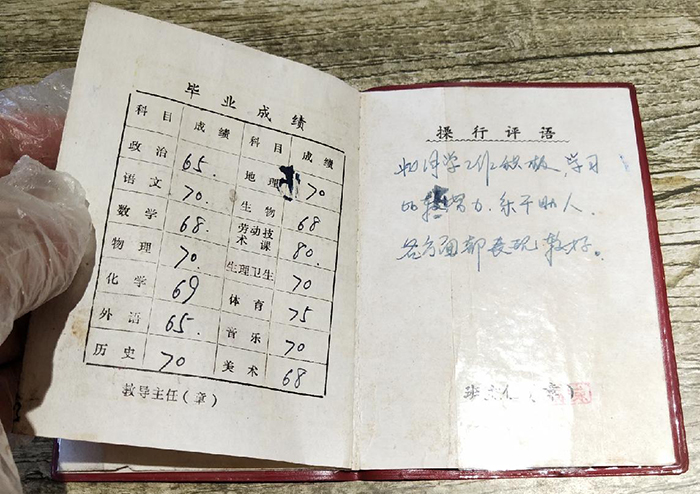 毕业成绩
科目 成绩 科目 成绩
政治 65. 地理 70
语文 70. 生物 68
数学 68. 劳动技术课 80.
物理 70. 生理卫生 70
化学 69 体育 75
外语 65. 音乐 70
历史 70 美术 68
教导主任(章)
操行评语
同学工作积极,学习
努力.乐于助人.
各方面都表现较好。
班主任(章)